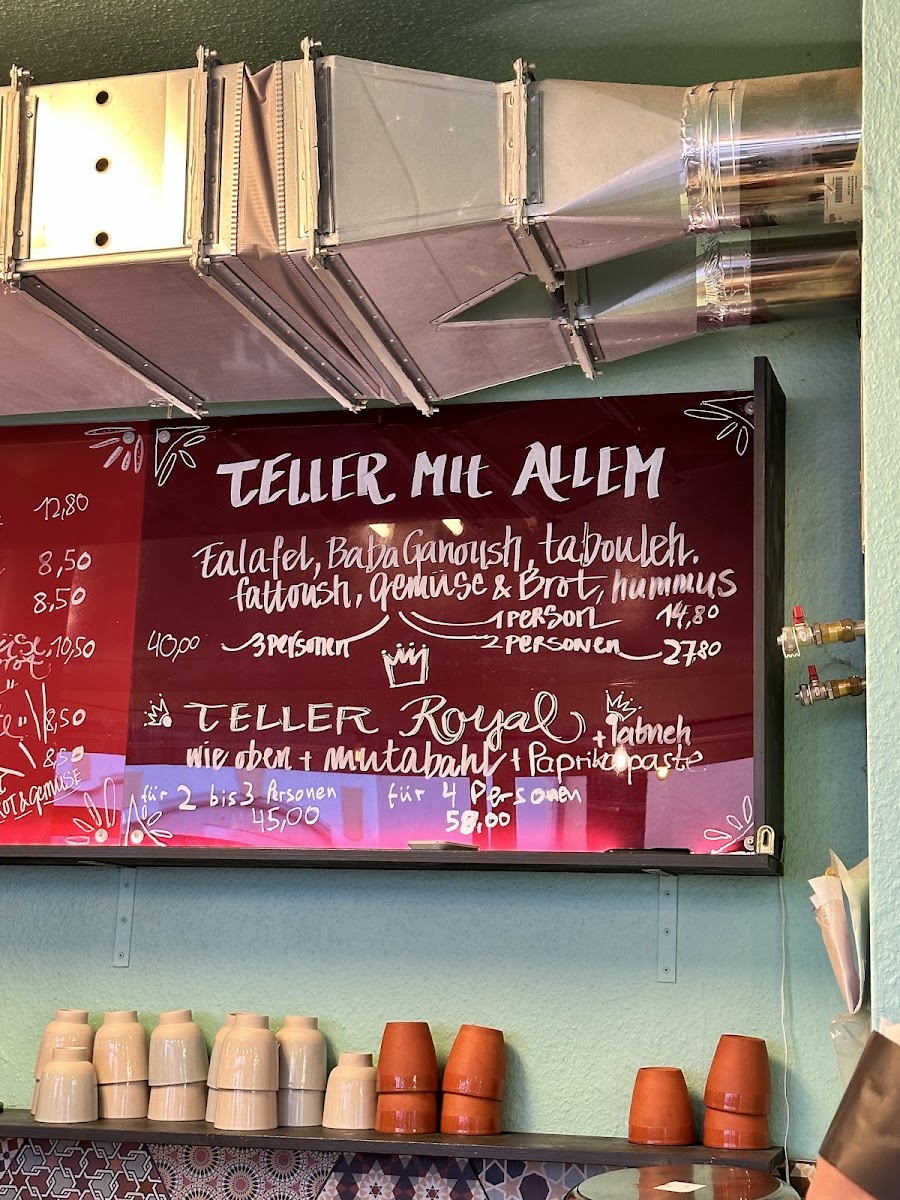 12,80
8,50
8,50
10,50
8,50
8,50
TELLER MIT ALLEM
Falafel, Baba Ganoush, tabouleh.
fattoush, Gemüse & Brot, hummus
1 PERSON 14,80
40,00 3 Personen 2 PERSONEN 27,80
TELLER Royal + labneh
wie oben + mutabahl + Paprikapaste
für 2 bis 3 Personen für 4 Personen
45,00 58,00